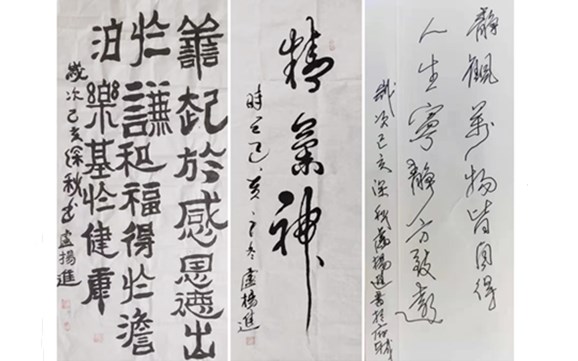 善起於感恩德出
於謙和福得於澹
泊樂基於健康
歲次己亥深秋書盧揚進
精氣神
時在己亥之冬盧揚進
靜觀萬物皆自得
人生寧靜方致遠
歲次己亥深秋盧揚進書於